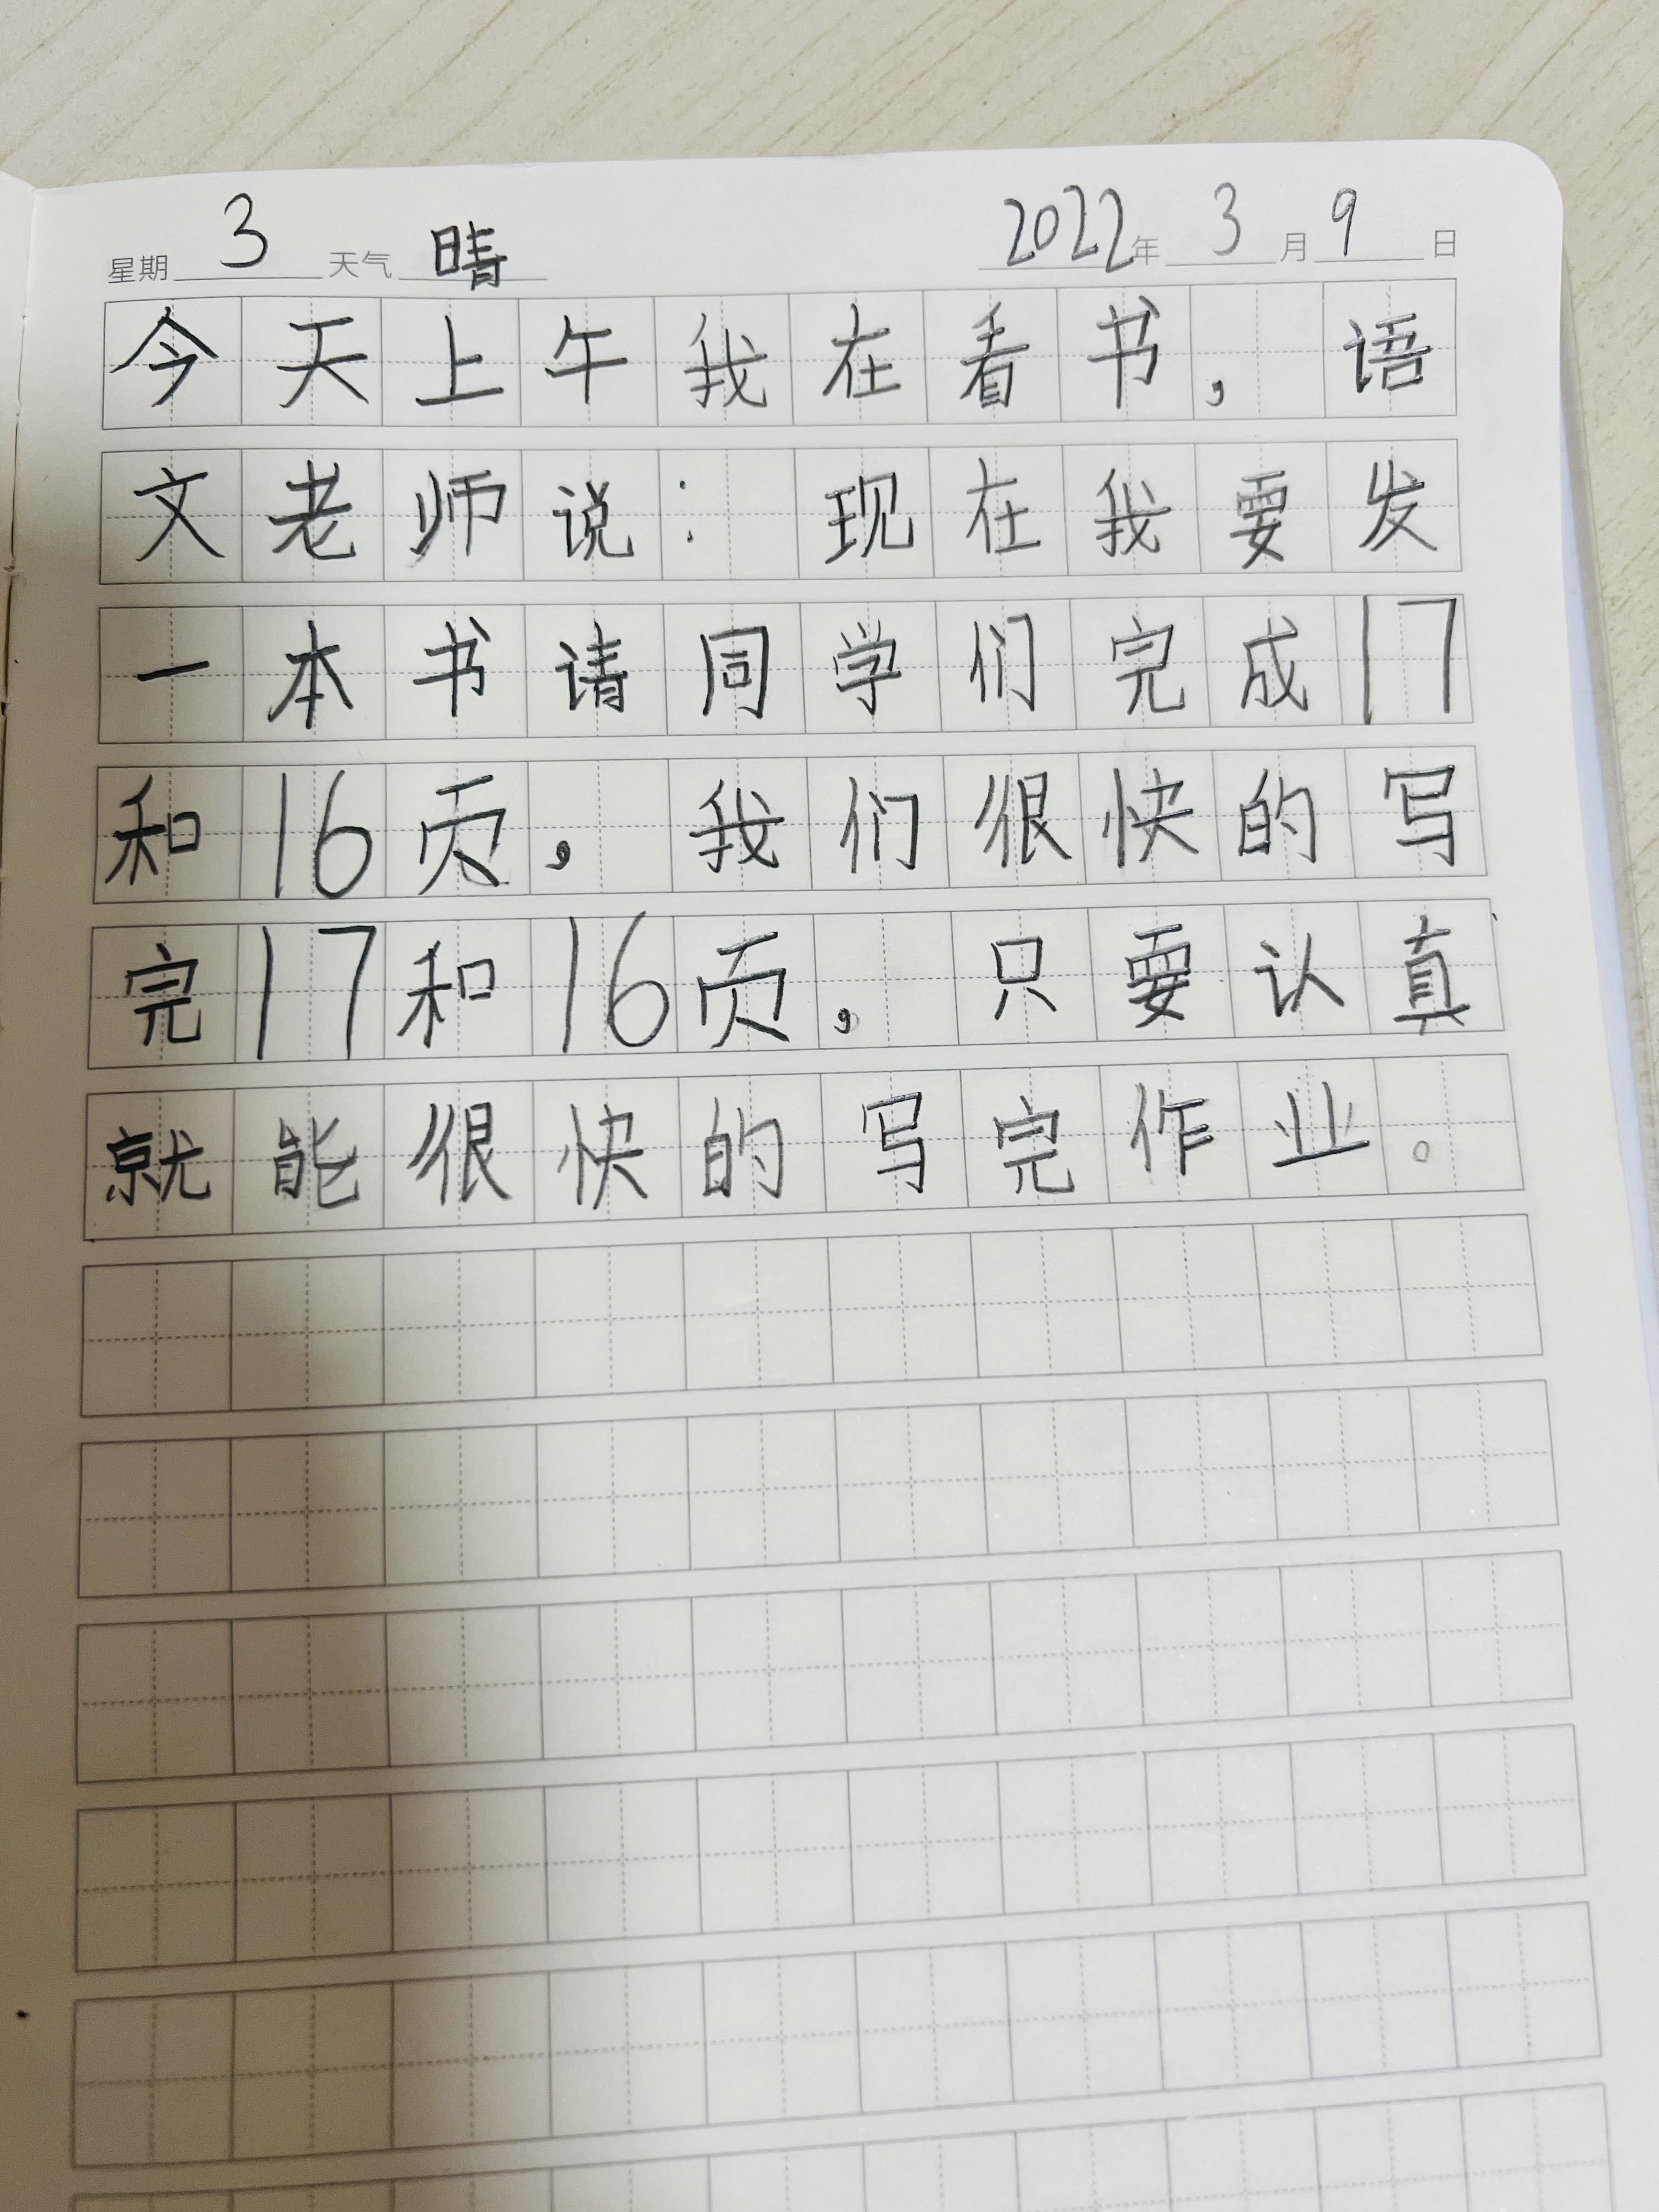 星期 3 天气 晴 2022年 3 月 9 日
今天上午我在看书，语
文老师说：现在我要发
一本书请同学们完成17
和16页，我们很快的写
完17和16页，只要认真
就能很快的写完作业。